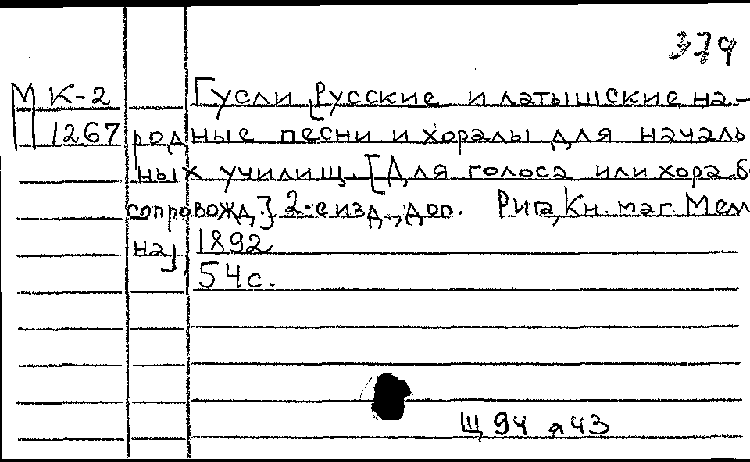 379
М К-2 Гусли. Русские и латышские на-
1267 родные песни и хоралы для началь
ных училищ. [Для голоса или хора б
сопровожд.] 2-е изд., доп. Рига, Кн. маг. Мел
на, 1892
54 с.
Щ 94 я 43